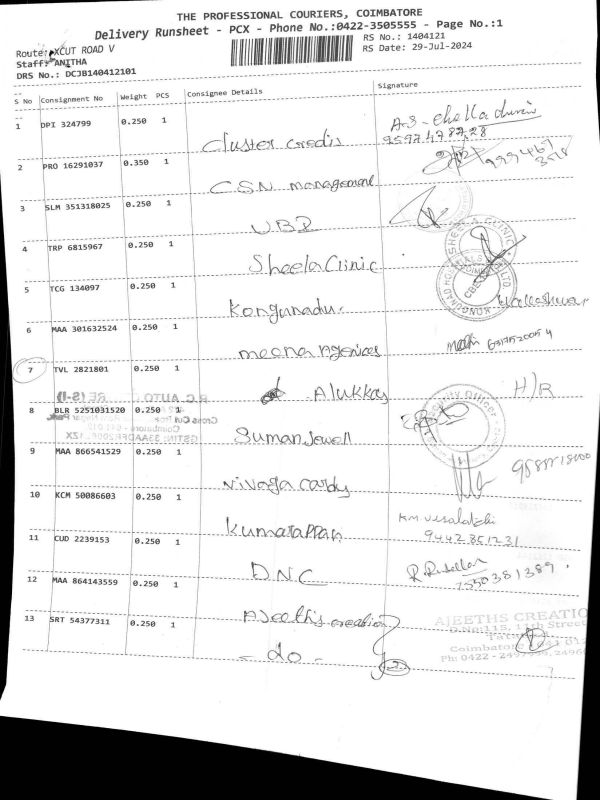 THE PROFESSIONAL COURIERS, COIMBATORE
Delivery Runsheet - PCX - Phone No.:0422-3505555 - Page No.:1
Route: XCUT ROAD V
RS No.: 1404121
Staff: ANITHA
RS Date: 29-Jul-2024
DRS No.: DCJB140412101
S No Consignment No Weight PCS Consignee Details Signature
1 DPI 324799 0.250 1 Cluster credis A.S-chelladurai
9597478728
2 PRO 16291037 0.350 1 CSN management
3 SLM 351318025 0.250 1 UBI
4 TRP 6815967 0.250 1 Sheela Clinic
SHEELA CLINIC
5 TCG 134097 0.250 1 Kongunadu.
6 MAA 301632524 0.250 1 meena Agencies
7 TVL 2821801 0.250 1 Alukkas H/R
8 BLR 5251031520 0.250 1 Suman Jewell
9 MAA 866541529 0.250 1
10 KCM 50086603 0.250 1 Kumarappan K.M. Visalatchi
9442851231
11 CUD 2239153 0.250 1 D.N.C
7550381389.
12 MAA 864143559 0.250 1 Ajeeth's creation
13 SRT 54377311 0.250 1 - do -
AJEETHS CREATIO
D.No:115, 11th Street
Coimbatore
Ph: 0422 -